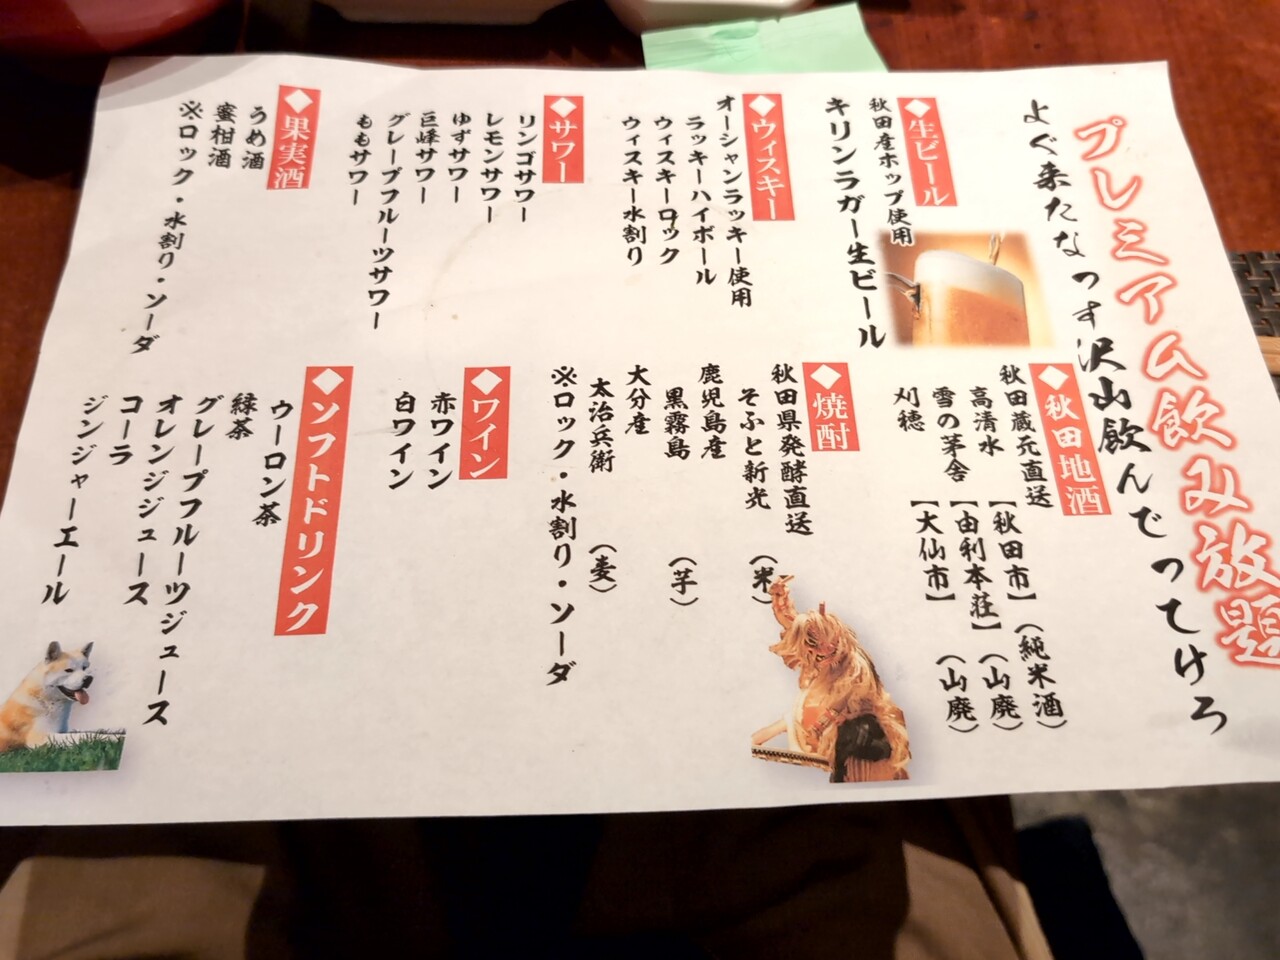 プレミアム飲み放題
よぐ来たなっす沢山飲んでってけろ
◆生ビール
秋田産ホップ使用
キリンラガー生ビール
◆ウィスキー
オーシャンラッキー使用
ラッキーハイボール
ウィスキーロック
ウィスキー水割り
◆サワー
リンゴサワー
レモンサワー
ゆずサワー
巨峰サワー
グレープフルーツサワー
ももサワー
◆果実酒
うめ酒
蜜柑酒
※ロック・水割り・ソーダ
◆秋田地酒
秋田蔵元直送
高清水 【秋田市】（純米酒）
雪の茅舎 【由利本荘】（山廃）
刈穂 【大仙市】（山廃）
◆焼酎
秋田県発酵直送
そふと新光 （米）
鹿児島産
黒霧島 （芋）
大分産
太治兵衛 （麦）
※ロック・水割り・ソーダ
◆ワイン
赤ワイン
白ワイン
◆ソフトドリンク
ウーロン茶
緑茶
グレープフルーツジュース
オレンジジュース
コーラ
ジンジャーエール